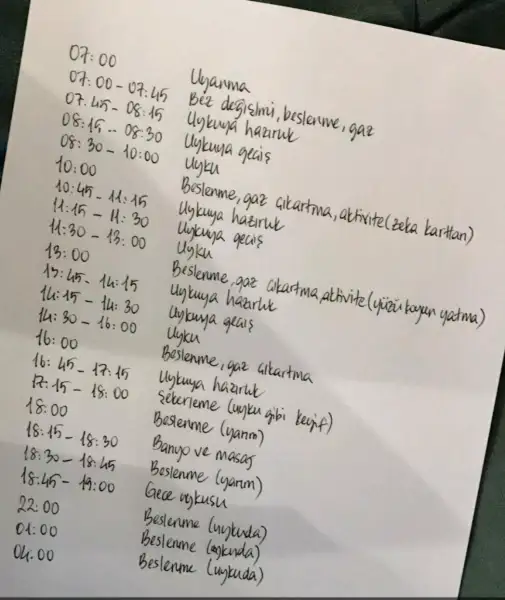 07:00 Uyanma
07:00 - 07:45 Bez değişimi, beslenme, gaz
07.45 - 08:15 Uykuya hazırlık
08:15 - 08:30 Uykuya geçiş
08:30 - 10:00 Uyku
10:00 Beslenme, gaz çıkartma, aktivite (zeka kartları)
10:45 - 11:15 Uykuya hazırlık
11:15 - 11:30 Uykuya geçiş
11:30 - 13:00 Uyku
13:00 Beslenme, gaz çıkartma, aktivite (yüzükoyun yatma)
13:45 - 14:15 Uykuya hazırlık
14:15 - 14:30 Uykuya geçiş
14:30 - 16:00 Uyku
16:00 Beslenme, gaz çıkartma
16:45 - 17:15 Uykuya hazırlık
17:15 - 18:00 Şekerleme (uyku gibi keyif)
18:00 Beslenme (yarım)
18:15 - 18:30 Banyo ve masaj
18:30 - 18:45 Beslenme (yarım)
18:45 - 19:00 Gece uykusu
22:00 Beslenme (uykuda)
01:00 Beslenme (uykuda)
04.00 Beslenme (uykuda)